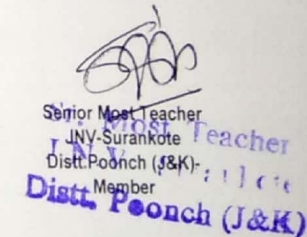 Senior Most Teacher
JNV-Surankote
Distt.Poonch (J&K)-
Member
Most Teacher
J.N.V.
Distt. Poonch (J&K)